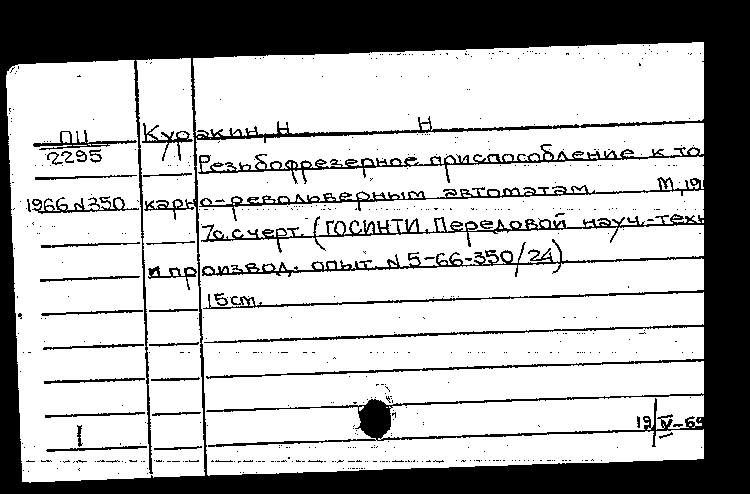 ПЦ Куракин, Н Н
2295
Резьбофрезерное приспособление к то
1966 N350 карно-револьверным автоматам. М, 19
7с. с черт. (ГОСИНТИ. Передовой науч.-техн
и производ. опыт. N 5-66-350/24)
15ст.
19/IV-69